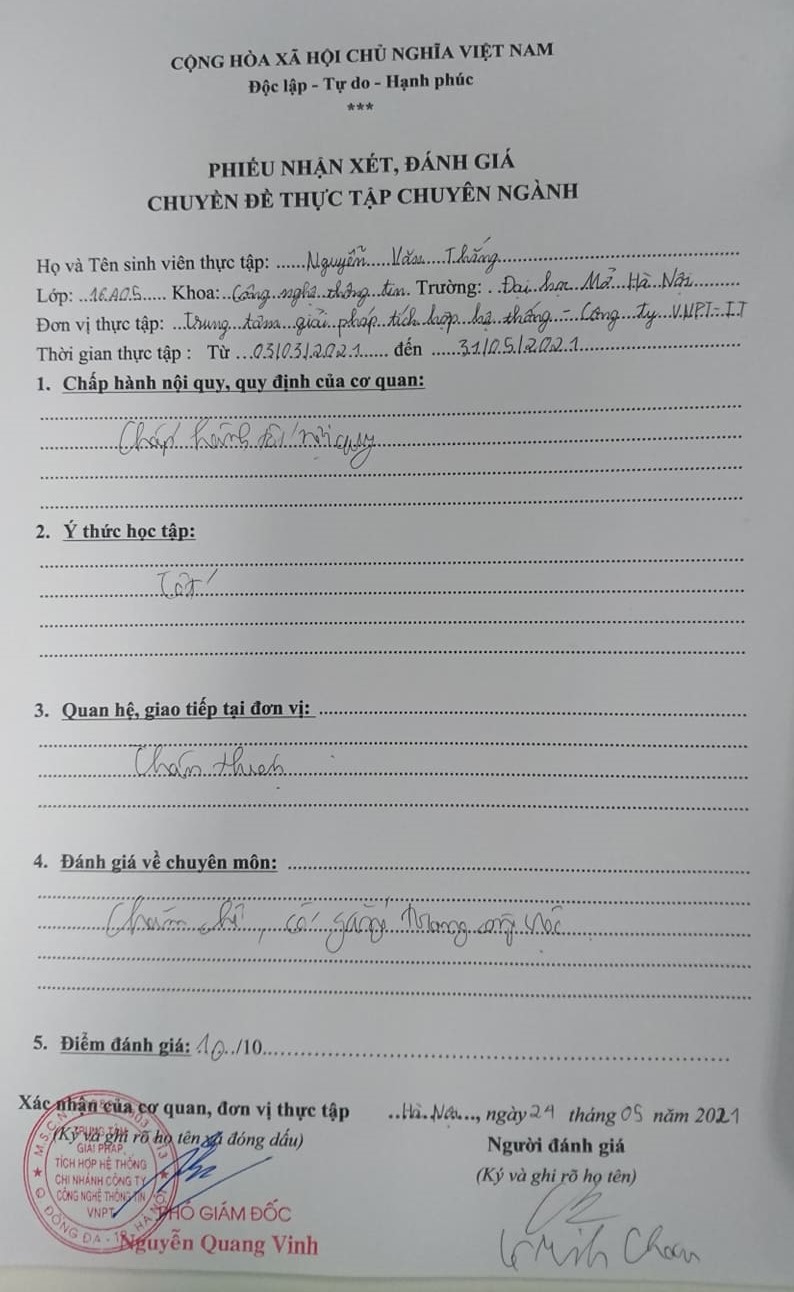 CỘNG HÒA XÃ HỘI CHỦ NGHĨA VIỆT NAM
Độc lập - Tự do - Hạnh phúc
***
PHIẾU NHẬN XÉT, ĐÁNH GIÁ
CHUYÊN ĐỀ THỰC TẬP CHUYÊN NGÀNH
Họ và Tên sinh viên thực tập: ......Nguyễn Văn Thắng
Lớp: ..16A05..... Khoa: Công nghệ thông tin. Trường: . Đại học Mở Hà Nội
Đơn vị thực tập: ...Trung tâm giải pháp tích hợp hệ thống - Công ty VNPT-IT
Thời gian thực tập : Từ ...03/03/2021...... đến ......31/05/2021
1. Chấp hành nội quy, quy định của cơ quan:
Chấp hành tốt nội quy
2. Ý thức học tập:
Tốt
3. Quan hệ, giao tiếp tại đơn vị:
Thân thiện
4. Đánh giá về chuyên môn:
Chăm chỉ, cố gắng trong công việc
5. Điểm đánh giá: 10../10
Xác nhận của cơ quan, đơn vị thực tập
(Ký và ghi rõ họ tên và đóng dấu)
..Hà Nội..., ngày 24 tháng 05 năm 2021
Người đánh giá
(Ký và ghi rõ họ tên)
GIẢI PHÁP
TÍCH HỢP HỆ THỐNG
CHI NHÁNH CÔNG TY
CÔNG NGHỆ THÔNG TIN
VNPT
PHÓ GIÁM ĐỐC
Nguyễn Quang Vinh